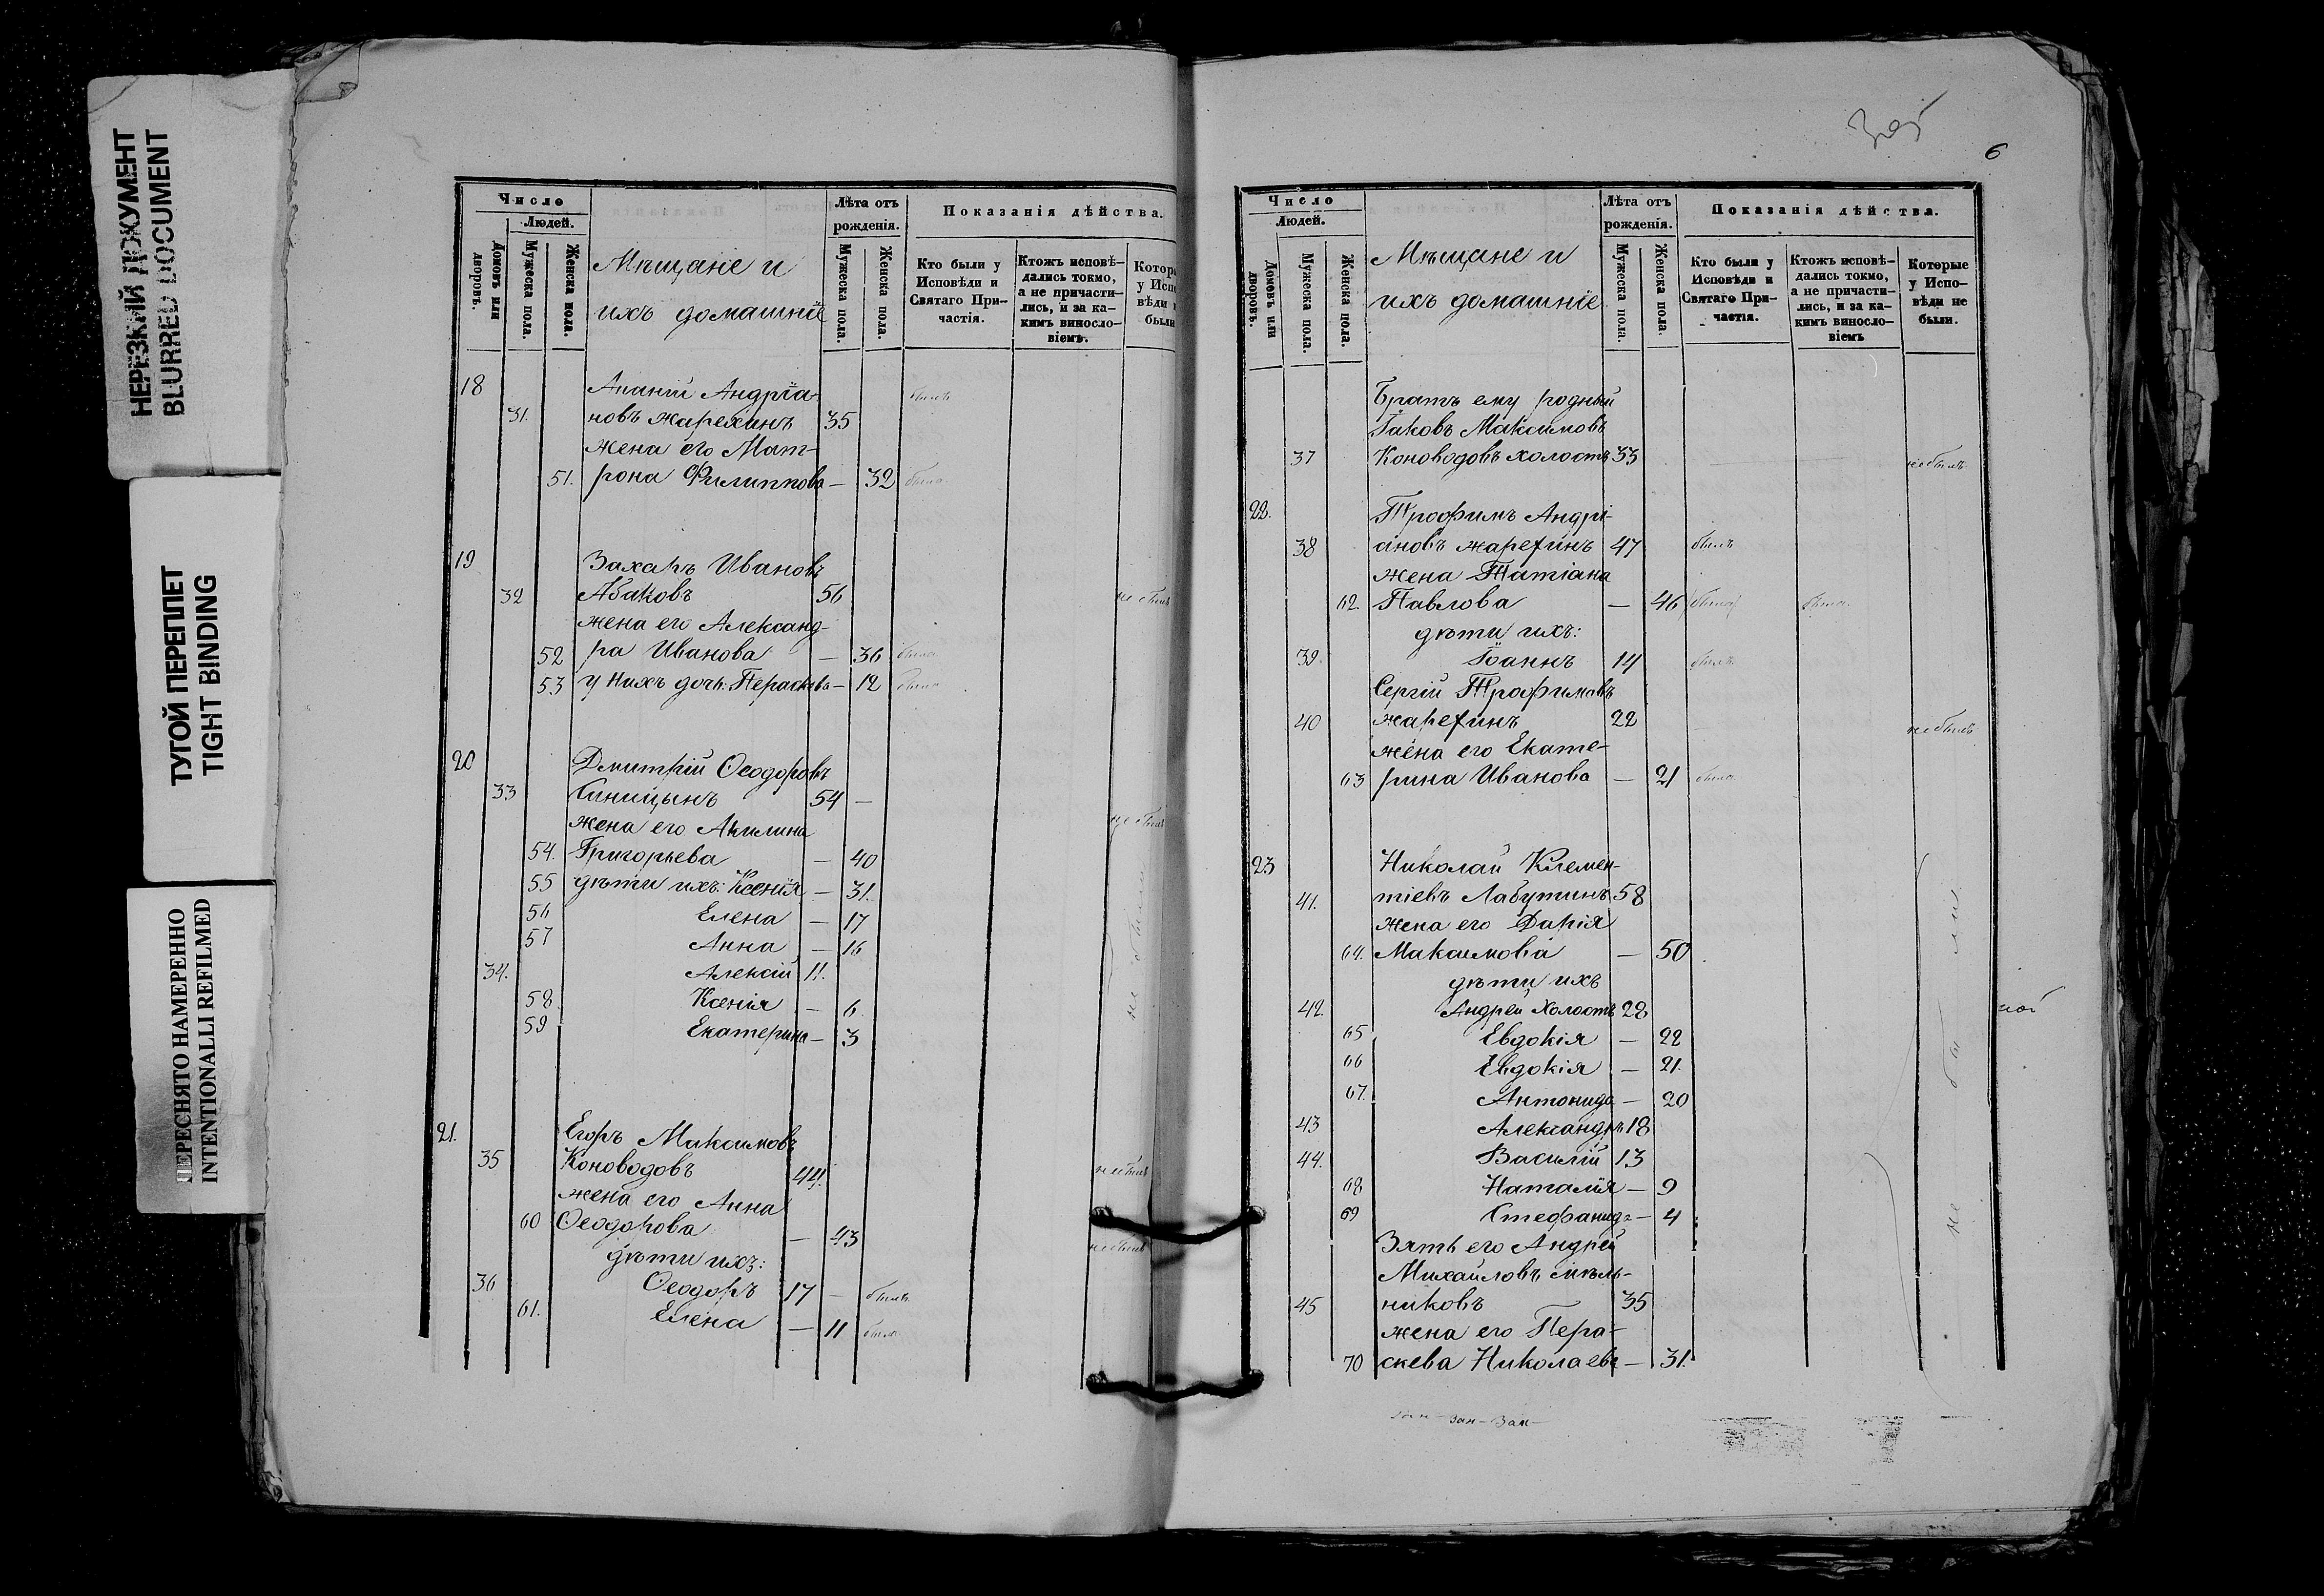 НЕРЕЗКИЙ ДОКУМЕНТ
BLURRED DOCUMENT
ТУГОЙ ПЕРЕПЛЕТ
TIGHT BINDING
ПЕРЕСНЯТО НАМЕРЕННО
INTENTIONALLI REFILMED
Число
Людей.
Домовъ или дворовъ.
Мужеска пола.
Женска пола.
Мѣщане и
ихъ домашніе
Лѣта отъ
рожденія.
Мужеска пола.
Женска пола.
Показанія дѣйства.
Кто были у
Исповѣди и
Святаго При-
частія.
Ктожъ исповѣ-
дались токмо,
а не причасти-
лись, и за ка-
кимъ винсло-
віемъ.
Котор
у Испо
вѣди н
были
18 Ананій Андріа- былъ
31. новъ Жарехинъ 35
жена его Мат-
51. рона Филиппова — 32 была
19 Захаръ Ивановъ
32 Абаковъ 56 не былъ
жена его Александ-
52 ра Иванова — 36 была
53 у нихъ дочь: Параскева — 12 была
20 Дмитрій Ѳеодоровъ
33 Синицынъ 54 —
жена его Акилина не былъ
54. Григорьева — 40
55 дѣти ихъ: Ксенія — 31.
56 Елена — 17
57 Анна — 16
34. Алексій 11.
58. Ксенія — 6
59 Екатерина — 3
не были
21. Егоръ Максимовъ
35 Коноводовъ 44. не былъ
жена его Анна
60 Ѳеодорова — 43
дѣти ихъ: не былъ
36 Ѳеодоръ 17 — былъ
61. Елена — 11 была
6
Число
Людей.
Домовъ или дворовъ.
Мужеска пола.
Женска пола.
Мѣщане и
ихъ домашніе
Лѣта отъ
рожденія.
Мужеска пола.
Женска пола.
Показанія дѣйства.
Кто были у
Исповѣди и
Святаго При-
частія.
Ктожъ исповѣ-
дались токмо,
а не причасти-
лись, и за ка-
кимъ винсло-
віемъ
Которые
у Испо-
вѣди не
были.
Братъ ему родный
Іаковъ Максимовъ
37 Коноводовъ холостъ 33 не былъ
22. Трофимъ Андрі-
38 ановъ Жарехинъ 47 былъ
жена Татіана
62. Павлова — 46 была была
дѣти ихъ:
39. Іоаннъ 14 былъ
Сергій Трофимовъ
40 Жарехинъ 22 не былъ
жена его Екате-
63 рина Иванова — 21 была
23 Николай Клемен-
41. тіевъ Лабутинъ 58
жена его Дарія
64. Максимова — 50
дѣти ихъ
42 Андрей Холостъ 28
65 Евдокія — 22
66 Евдокія — 21.
67. Антонида — 20
43 Александръ 18
44. Василій 13
68 Наталія — 9
69 Стефанида — 4
Зять его Андрей
Михайловъ Мѣль-
45 никовъ 35
жена его Пара-
70 скева Николаева — 31.
не были
зан—зан—